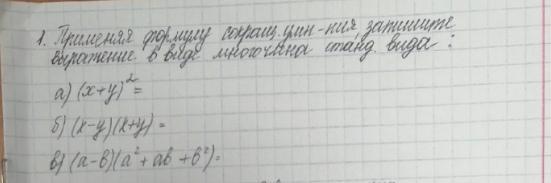 1. Применяя формулу сокращ. умн-ния, запишите
выражение в виде многочлена станд. вида:
а) (x+y)²=
б) (x-y)(x+y)=
в) (a-b)(a²+ab+b²)=